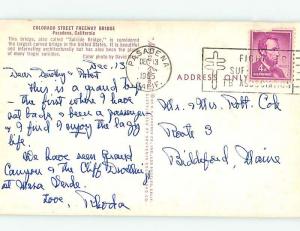 COLORADO STREET FREEWAY BRIDGE
Pasadena, California
This bridge, also called "Suicide Bridge", is considered
the largest curved bridge in the United States. It is beautiful
and interesting architecturally but has also been the
Color photo by David
PASADENA
DEC 13
CALIF.
FIGHT
TB ASSOCIATION
4¢
ADDRESS ON
Dec. 13
Dear Dorothy & Robt
This is a grand trip
the first where I have
not had a been a passenger
& find I enjoy the lazy
life.
We have seen Grand
Canyon & the Cliff Dwellings
at Mesa Verde.
Love, Rhoda
Mr. & Mrs. Robt. Cok
Route 3
Biddeford, Maine